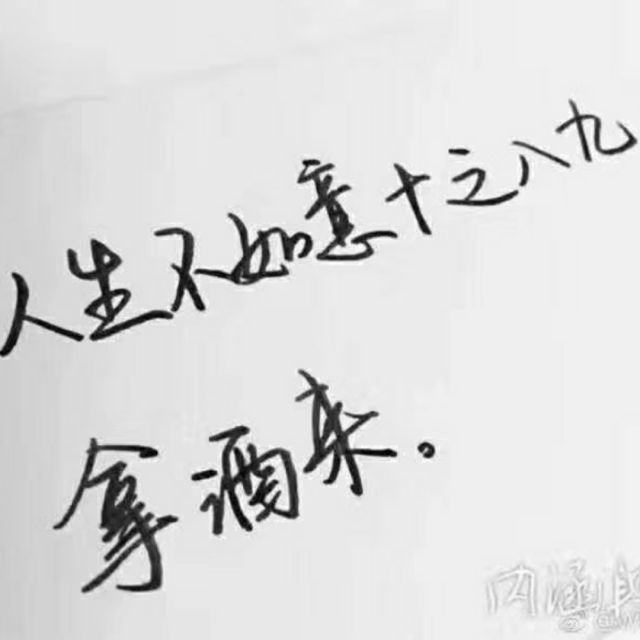 人生不如意十之八九
拿酒来。
内涵